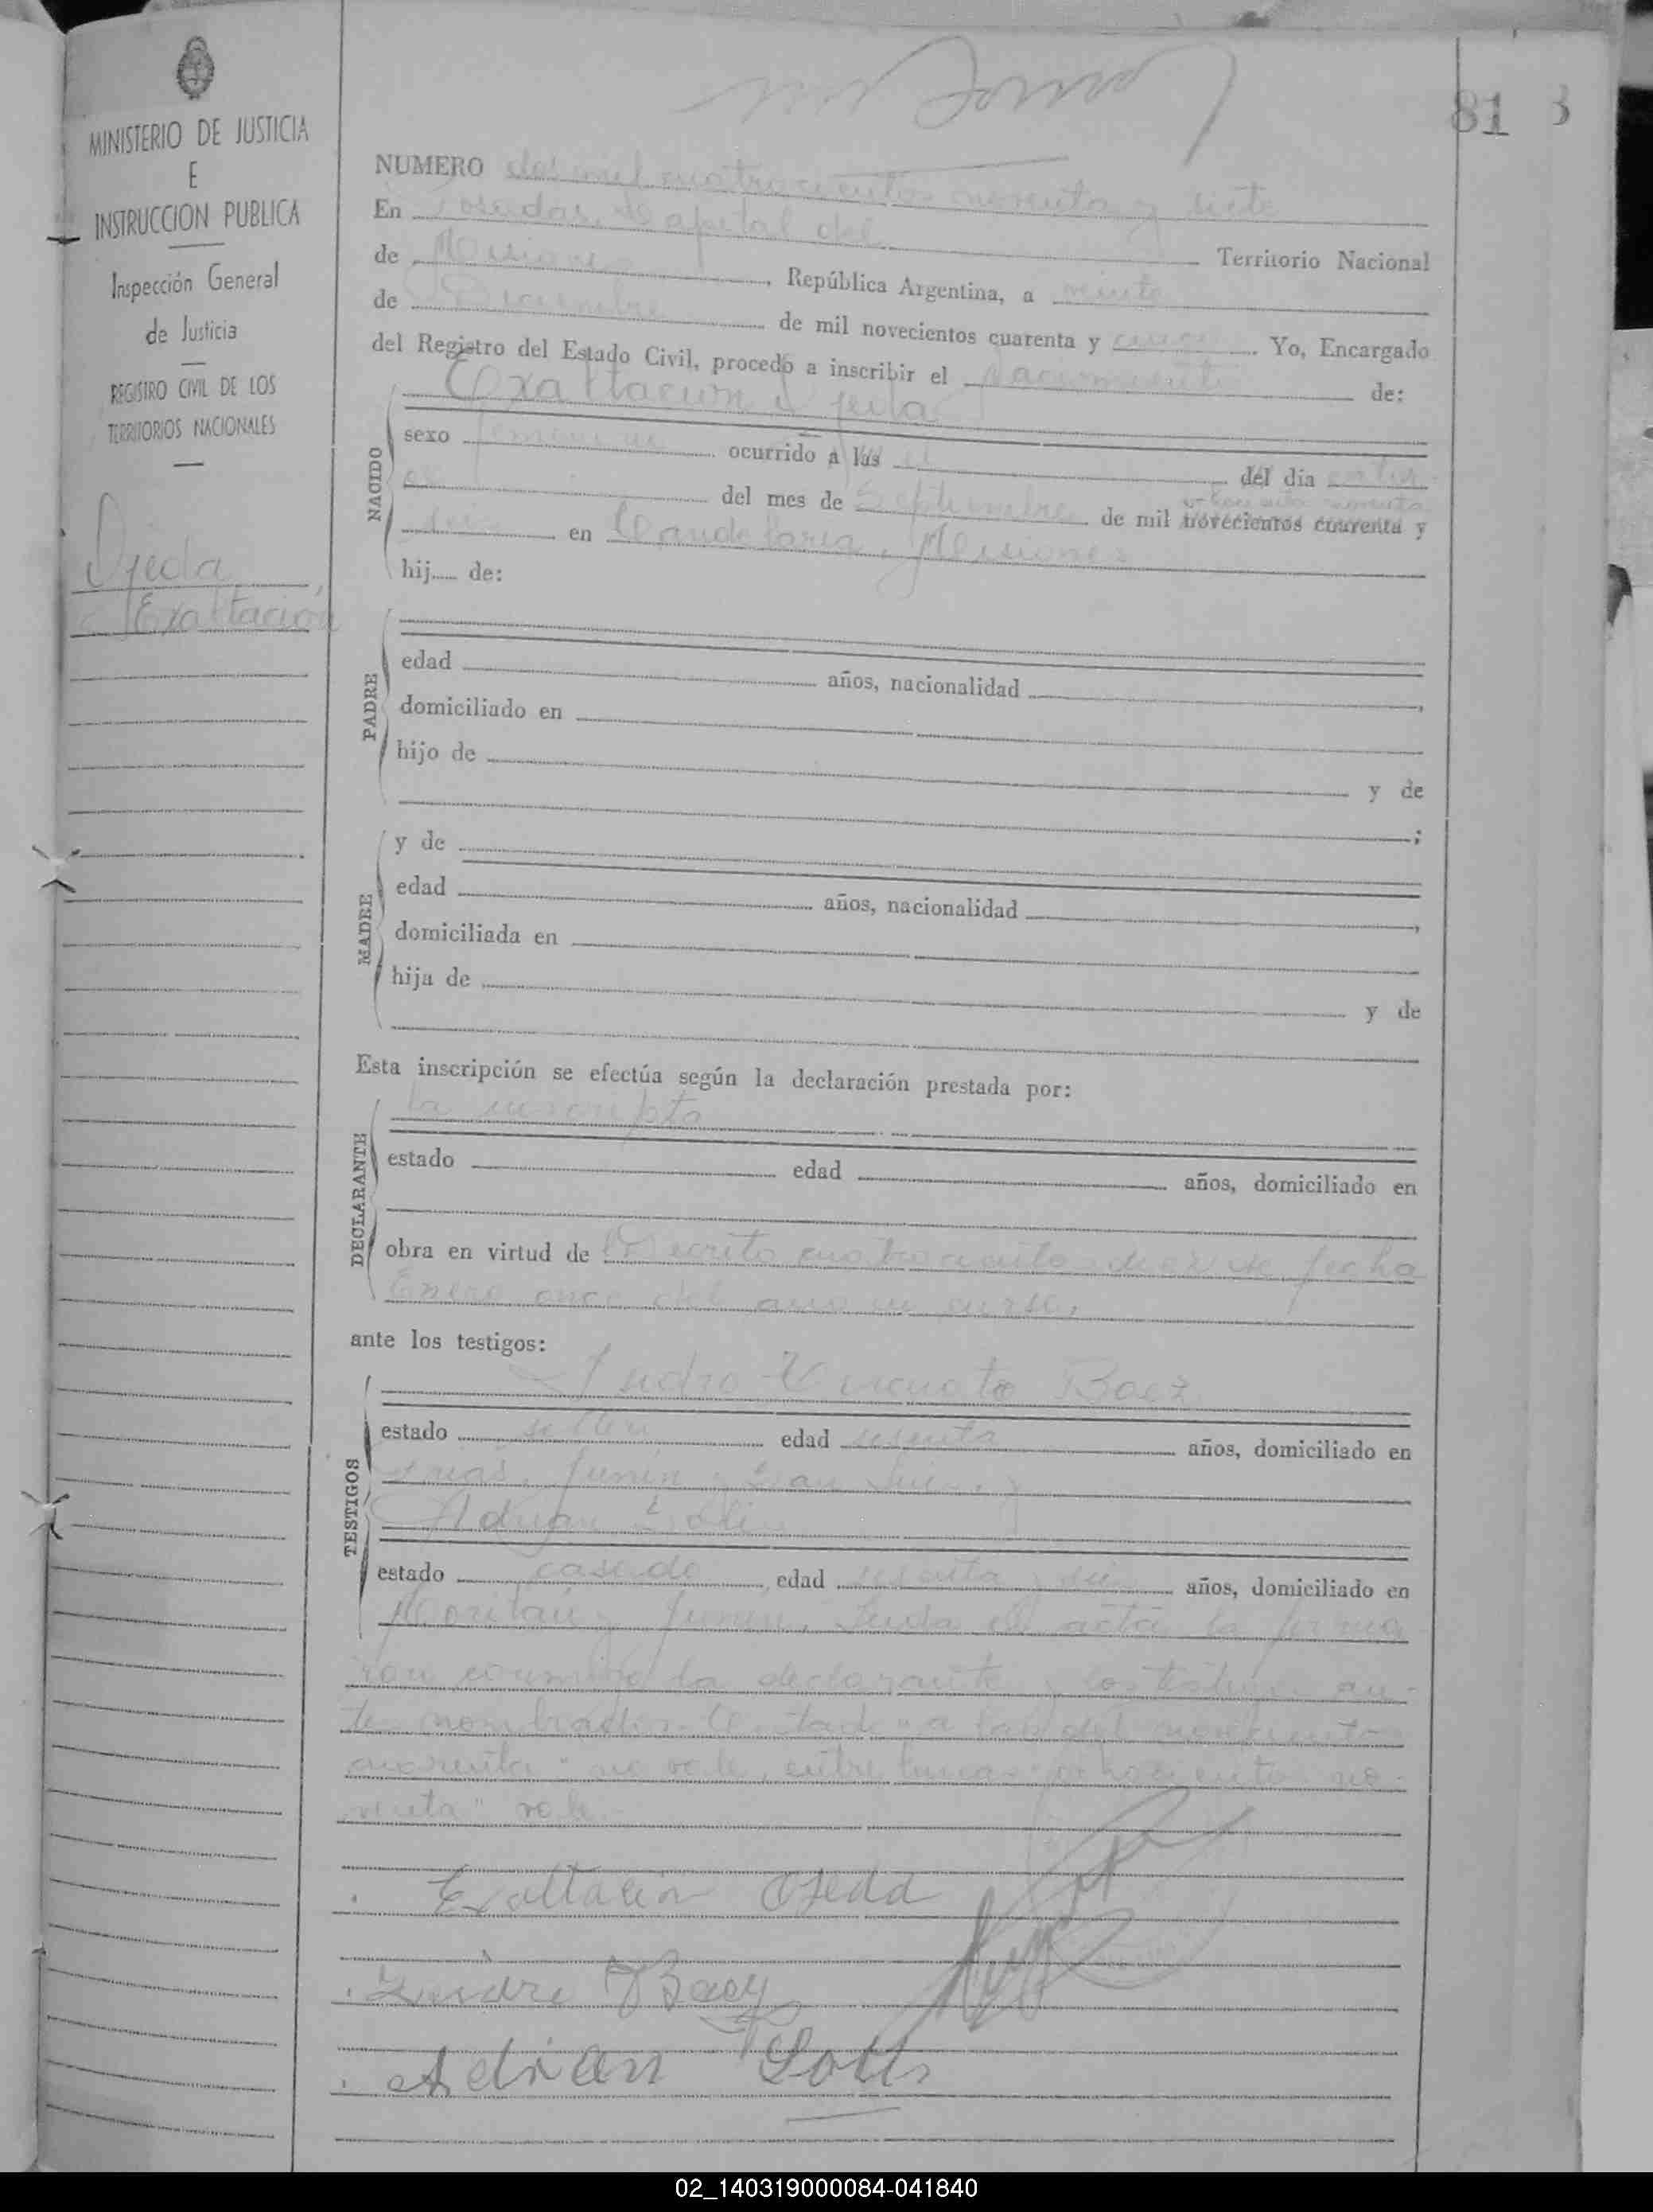 81 3
MINISTERIO DE JUSTICIA
E
INSTRUCCION PUBLICA
Inspección General
de Justicia
REGISTRO CIVIL DE LOS
TERRITORIOS NACIONALES
Ojeda,
Exaltación
NUMERO dos mil cuatrocientos noventa y siete
En Posadas, Capital del Territorio Nacional
de Misiones, República Argentina, a veinte
de Diciembre de mil novecientos cuarenta y Yo, Encargado
del Registro del Estado Civil, procedo a inscribir el nacimiento de:
NACIDO
Exaltación Ojeda
sexo femenino ocurrido a las el del día cator
ce del mes de Septiembre de mil ochocientos noventa novecientos cuarenta y
en Candelaria, Misiones
hij de:
PADRE
edad años, nacionalidad ,
domiciliado en
hijo de y de
;
MADRE
y de
edad años, nacionalidad ,
domiciliada en
hija de y de
Esta inscripción se efectúa según la declaración prestada por:
DECLARANTE
la inscripta
estado edad años, domiciliado en
obra en virtud de Decreto cuatrocientos fecha
Enero once del año en curso,
ante los testigos:
TESTIGOS
Baez
estado soltero edad sesenta años, domiciliado en
Junín y San Luis, y
Adrian Solis
estado casado edad sesenta y años, domiciliado en
y Junín. Leída el acta la firma
ron conmigo la declarante y los testigos an-
te nombrados. Testado "a las del novecientos
cuarenta" no vale, entre lineas "ochocientos no-
venta" vale.
Exaltacion Ojeda
Baez
Adrian Solis
02_140319000084-041840